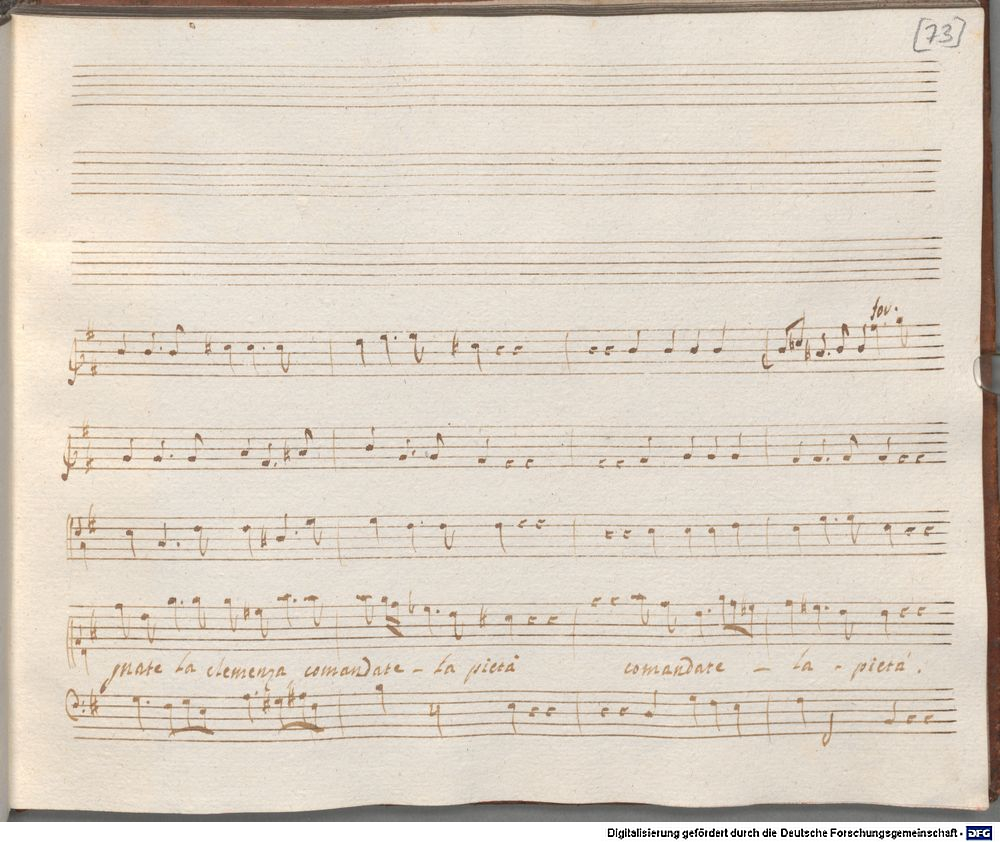 [73]
for.
gnate la clemenza comandate - la pietà comandate - la - pietà.
Digitalisierung gefördert durch die Deutsche Forschungsgemeinschaft - DFG